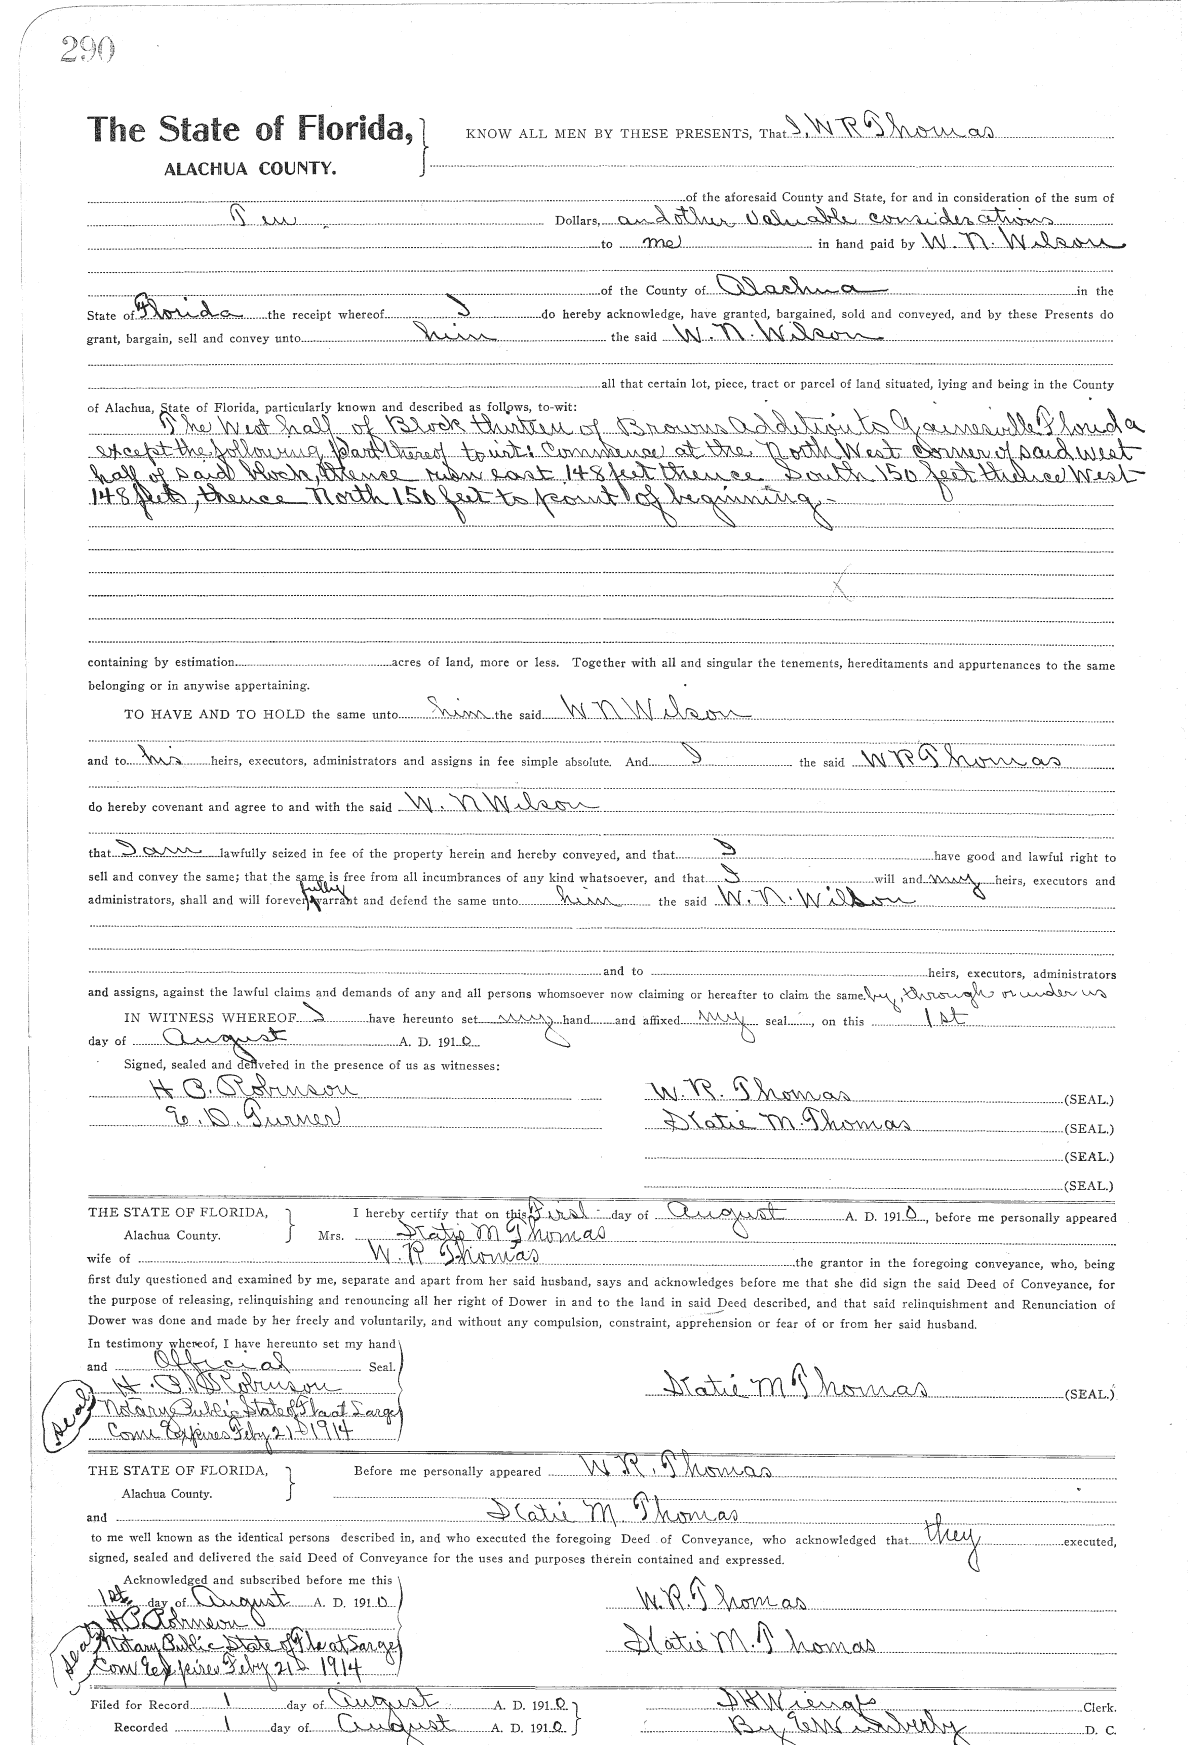 290
The State of Florida,
ALACHUA COUNTY.
KNOW ALL MEN BY THESE PRESENTS, That I, W R Thomas
of the aforesaid County and State, for and in consideration of the sum of
Ten Dollars, and other valuable considerations
to me in hand paid by W. N. Wilson
of the County of Alachua in the
State of Florida the receipt whereof I do hereby acknowledge, have granted, bargained, sold and conveyed, and by these Presents do
grant, bargain, sell and convey unto him the said W. N. Wilson
all that certain lot, piece, tract or parcel of land situated, lying and being in the County
of Alachua, State of Florida, particularly known and described as follows, to-wit:
The West half of Block thirteen of Browns Addition to Gainesville Florida
except the following part thereof to wit: Commence at the North West corner of said West
half of said block, thence run east 148 feet thence South 150 feet thence West
148 feet, thence North 150 feet to point of beginning.
containing by estimation acres of land, more or less. Together with all and singular the tenements, hereditaments and appurtenances to the same
belonging or in anywise appertaining.
TO HAVE AND TO HOLD the same unto him the said W N Wilson
and to his heirs, executors, administrators and assigns in fee simple absolute. And I the said W R Thomas
do hereby covenant and agree to and with the said W. N Wilson
that I am lawfully seized in fee of the property herein and hereby conveyed, and that I have good and lawful right to
sell and convey the same; that the same is free from all incumbrances of any kind whatsoever, and that I will and my heirs, executors and
administrators, shall and will forever fully warrant and defend the same unto him the said W. N. Wilson
and to heirs, executors, administrators
and assigns, against the lawful claims and demands of any and all persons whomsoever now claiming or hereafter to claim the same. by, through or under us
IN WITNESS WHEREOF I have hereunto set my hand and affixed my seal, on this 1st
day of August A. D. 1910
Signed, sealed and delivered in the presence of us as witnesses:
H C. Robinson W. R. Thomas (SEAL.)
E. D. Turner Katie M. Thomas (SEAL.)
(SEAL.)
(SEAL.)
THE STATE OF FLORIDA,
Alachua County.
I hereby certify that on this First day of August A. D. 1910, before me personally appeared
Mrs. Katie M Thomas
wife of W. R Thomas the grantor in the foregoing conveyance, who, being
first duly questioned and examined by me, separate and apart from her said husband, says and acknowledges before me that she did sign the said Deed of Conveyance, for
the purpose of releasing, relinquishing and renouncing all her right of Dower in and to the land in said Deed described, and that said relinquishment and Renunciation of
Dower was done and made by her freely and voluntarily, and without any compulsion, constraint, apprehension or fear of or from her said husband.
In testimony whereof, I have hereunto set my hand
and Official Seal.
H. C. Robinson Katie M Thomas (SEAL.)
seal Notary Public State of Fla at Large
Com Expires Feby 21D 1914
THE STATE OF FLORIDA,
Alachua County.
Before me personally appeared W. R. Thomas
and Katie M. Thomas
to me well known as the identical persons described in, and who executed the foregoing Deed of Conveyance, who acknowledged that they executed,
signed, sealed and delivered the said Deed of Conveyance for the uses and purposes therein contained and expressed.
Acknowledged and subscribed before me this
1st day of August A. D. 1910 W. R. Thomas
H C Robinson
seal Notary Public State of Fla at Large Katie M. Thomas
Com Expires Feby 21D 1914
Filed for Record 1 day of August A. D. 1910 Clerk.
Recorded 1 day of August A. D. 1910 By E Wimberly D. C.